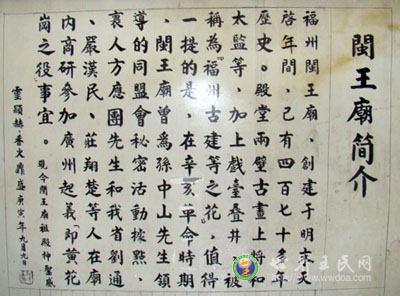 閩王廟簡介
福州閩王廟,創建于明末天
啓年間,已有四百七十多年
歷史。殿堂兩壁古畫上將和
太監等,加上戲臺疊井,被
稱為"福州古建等之花",值得
一提的是,在辛亥革命時期
、閩王廟曾為孫中山先生領
導的同盟會秘密活動據點、
裹人方應團先生和我省劉通
、嚴漢民、莊翔楚等人在廟
内商研參加廣州起義"即黃花
崗之役"事宜。現今閩王廟祖殿神聖威
靈顯赫香火鼎盛 庚寅年九月九日
王氏网